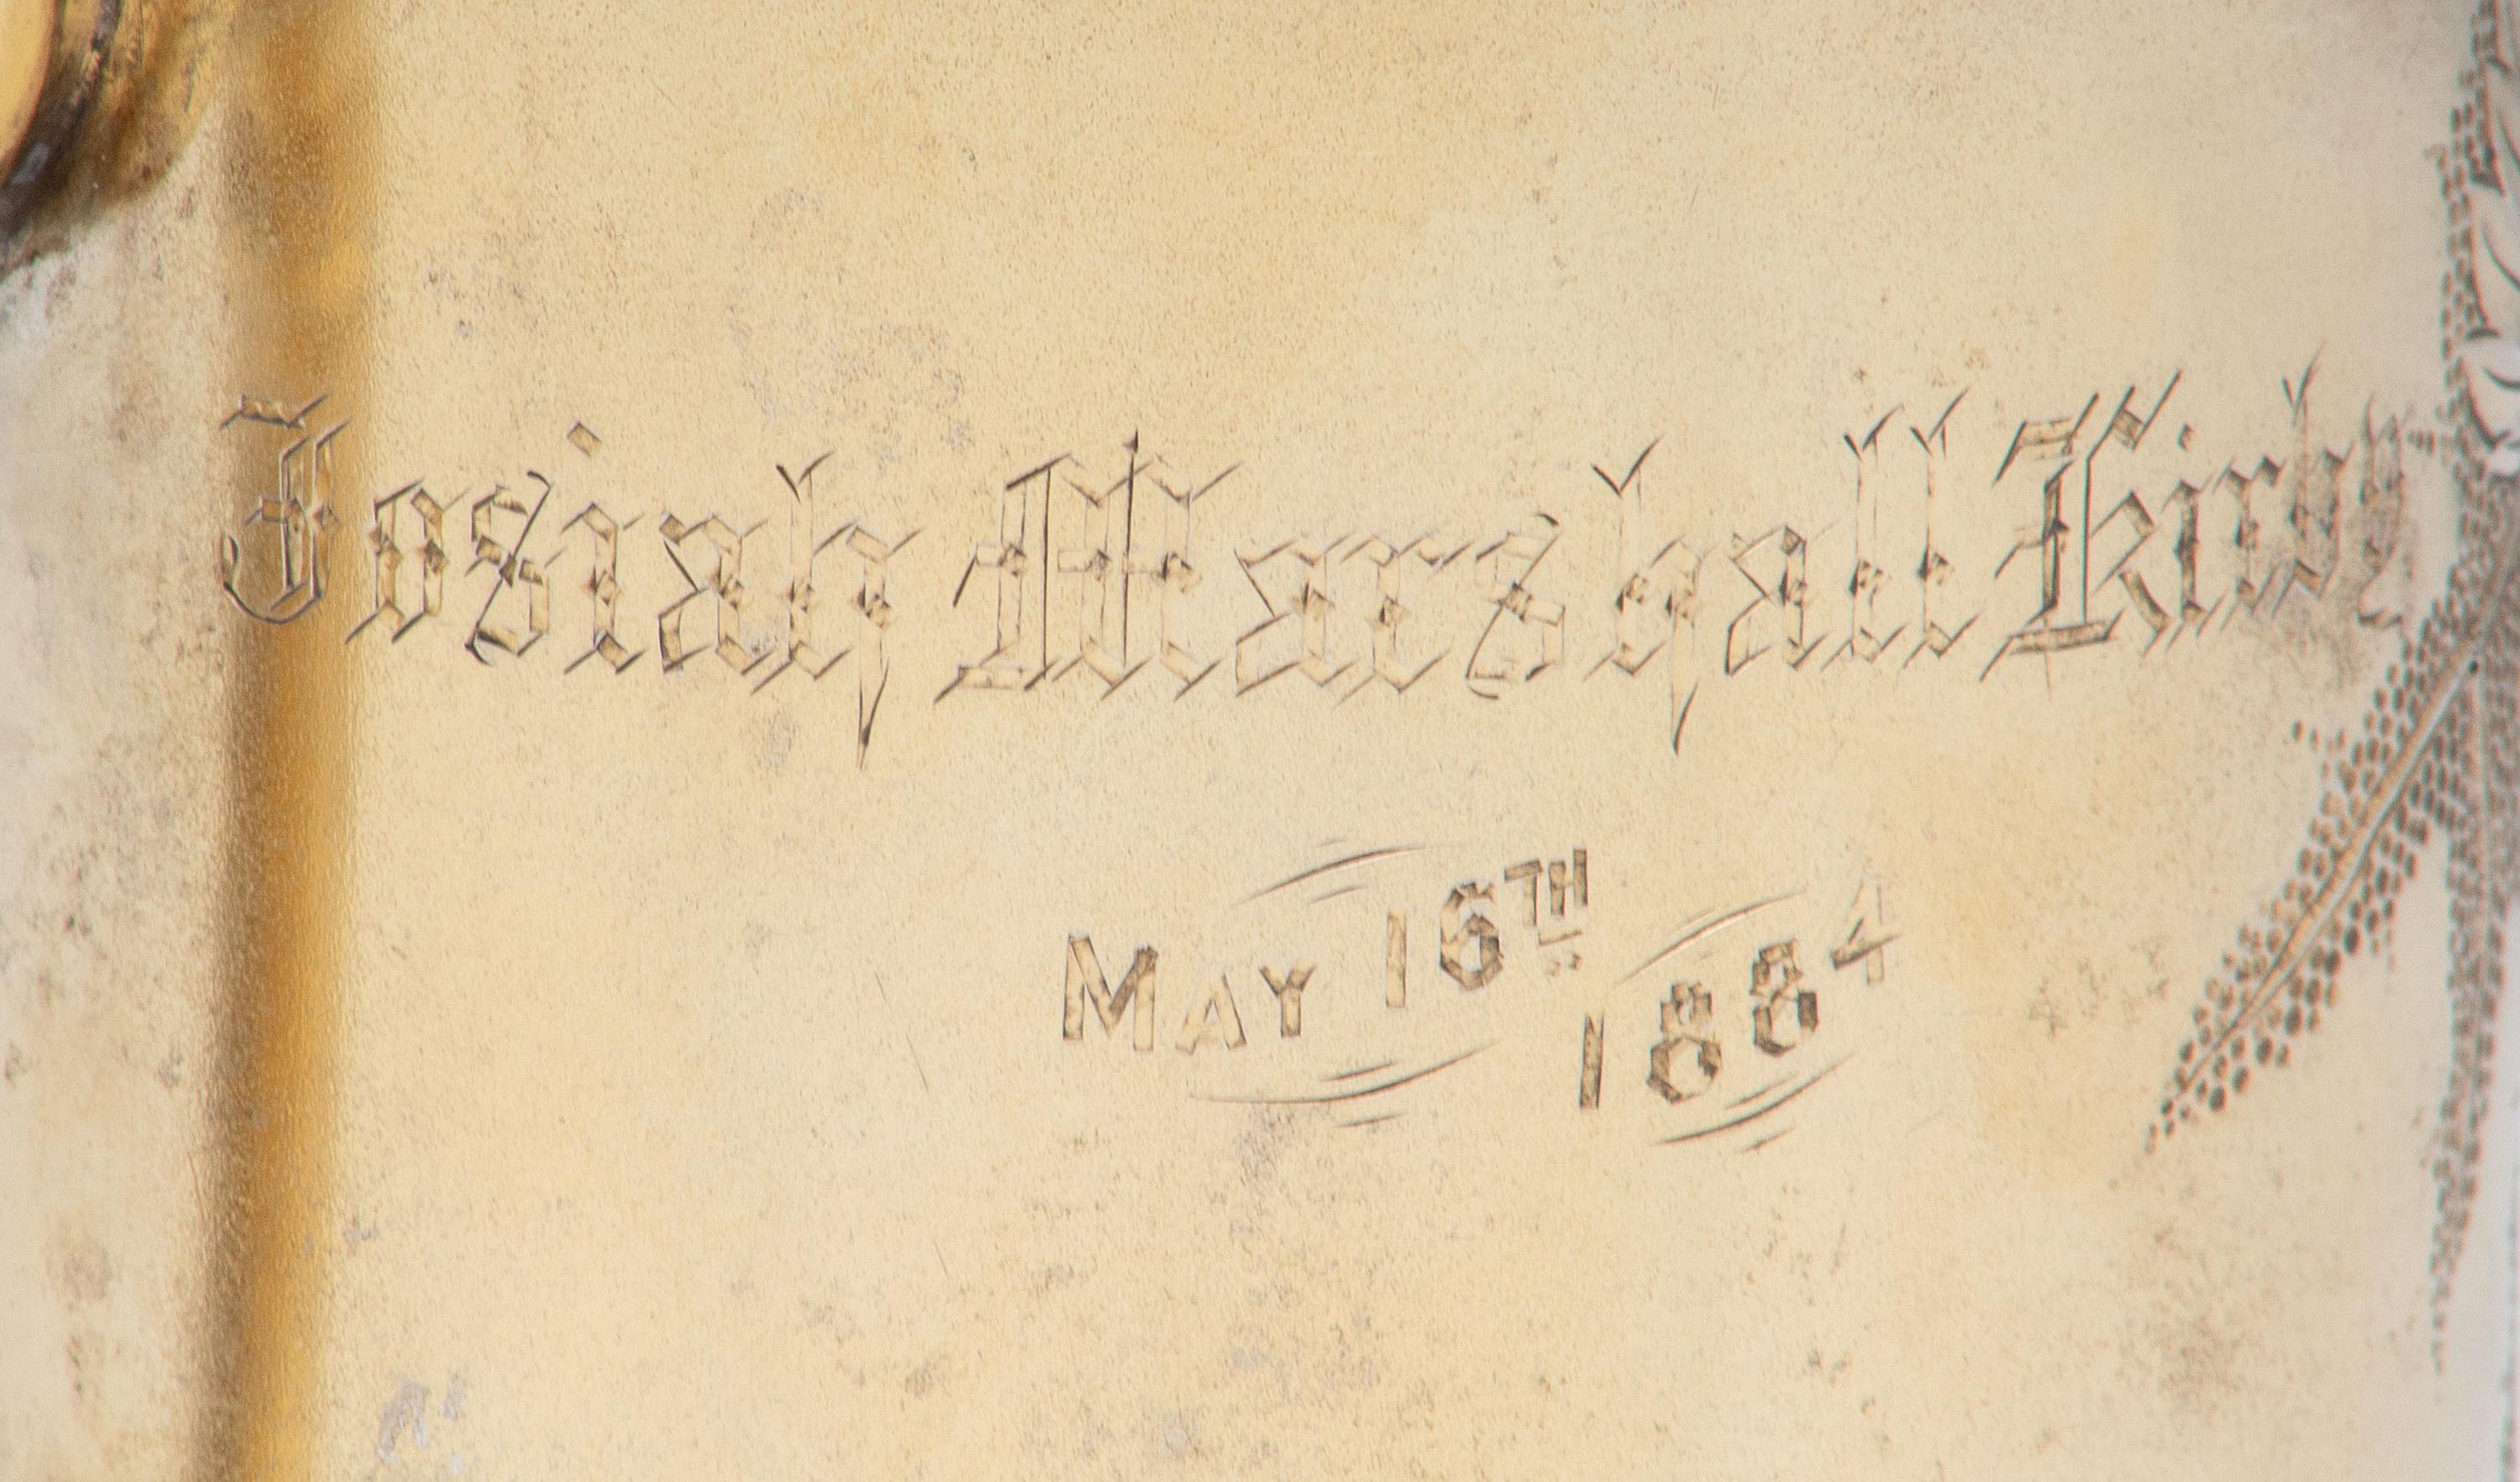 Josiah Marshall Kirby
MAY 16TH
1884